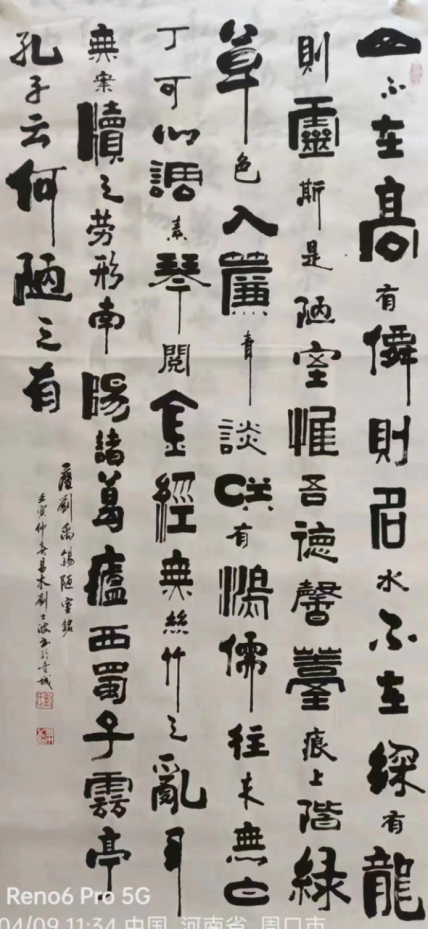 山不在高有僊則名水不在深有龍
則靈斯是陋室惟吾德馨薹痕上階緑
草色入簾青談咲有鴻儒往来無白
丁可以調素琴閱金經無絲竹之亂耳
無案牘之劳形南陽諸葛廬西蜀子雲亭
孔子云何陋之有
唐劉禹錫陋室銘
壬寅仲春
Reno6 Pro 5G
04/09 11:34 中国 河南省 周口市